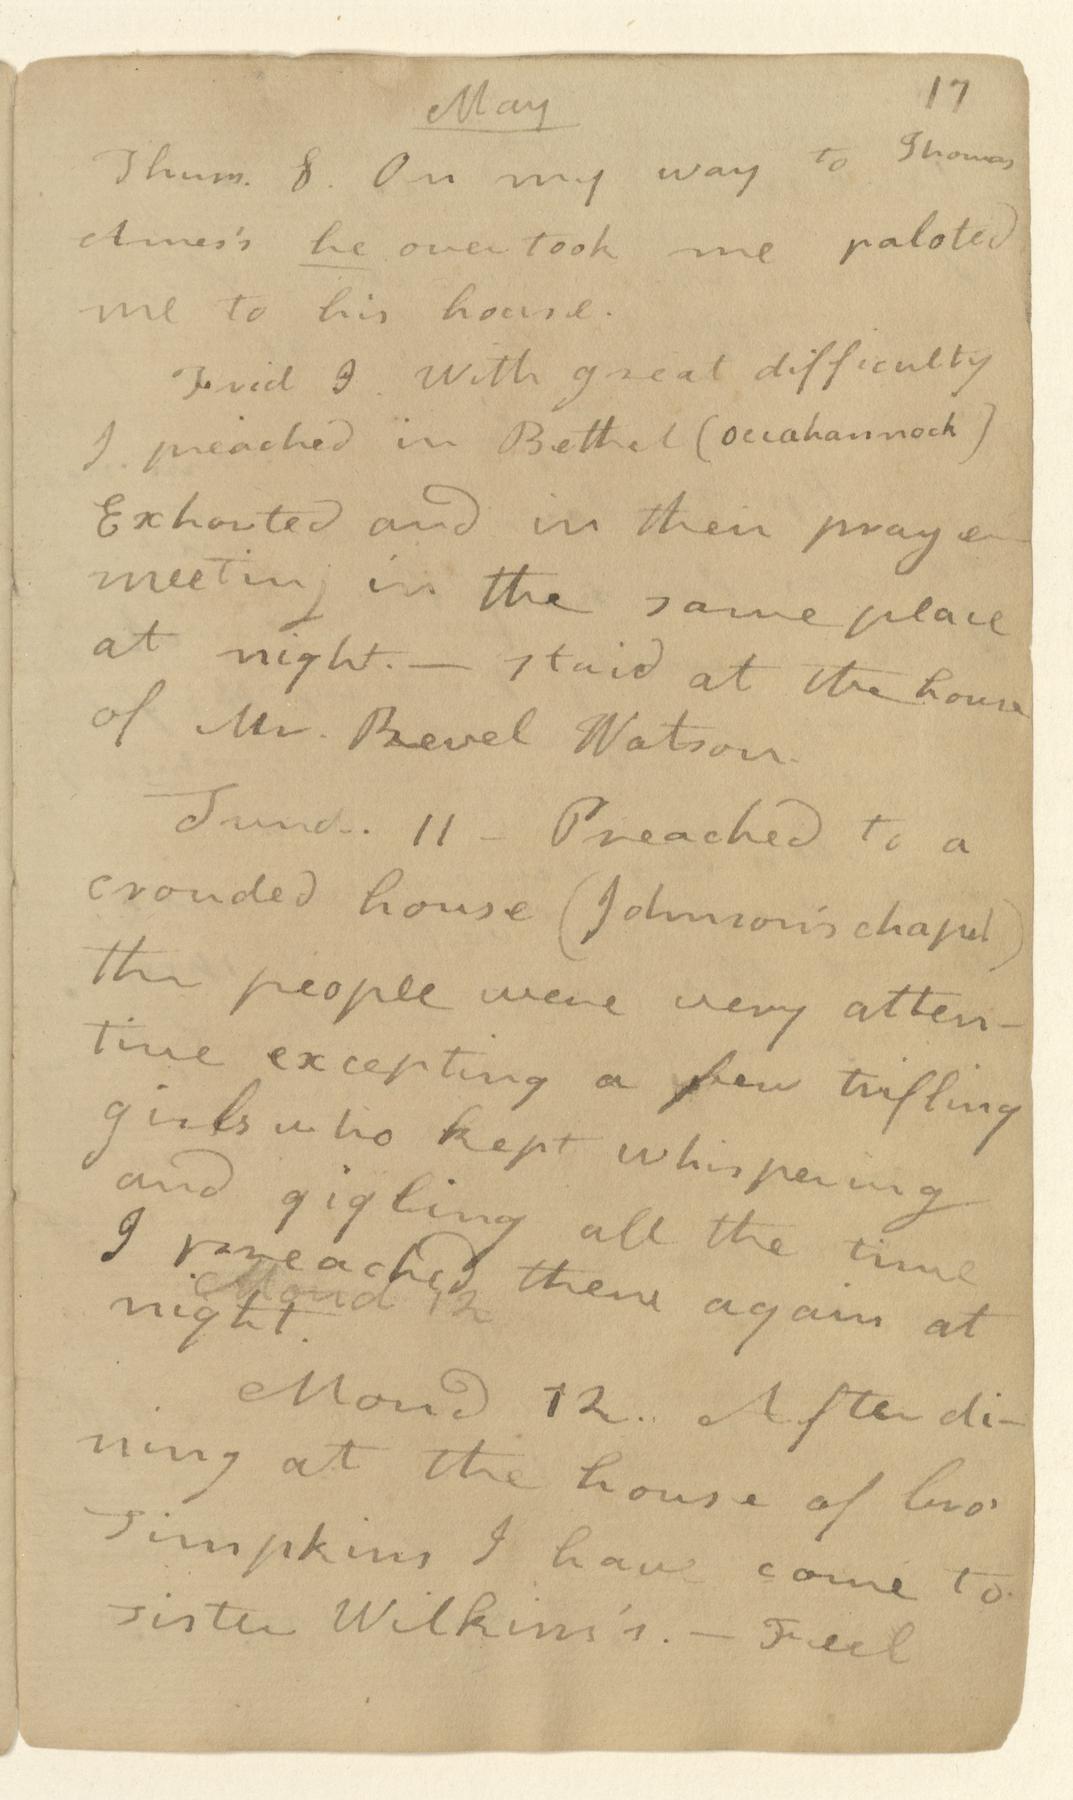 May
17
Thurs. 8. On my way to Thomas
Ames's he overtook me paloted
me to his house.
Frid 9. With great difficulty
I preached in Bethel (Occahannock)
Exhorted and in their prayer
meeting in the same place
at night. — staid at the house
of Mr. Bevel Watson.
Sund. 11 - Preached to a
crouded house (Johnson's chapel)
the people were very atten-
tive excepting a few trifling
girls who kept whispering
and gigling all the time
I preached there again at
Mond 12
night.
Mond 12. After di-
ning at the house of bro.
Simpkins I have come to
sister Wilkins's. — Feel